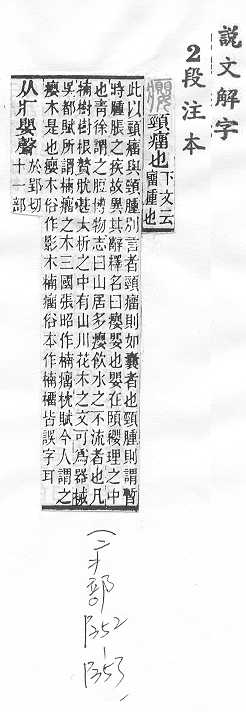 說文解字
2段注本
癭 頸瘤也 下文云
瘤腫也
此以頸瘤與頸腫別言者頸瘤則如囊者也頸腫則謂暫
時腫脹之疾故異其辭釋名曰癭嬰也嬰在頤纓理之中
也青徐謂之博物志曰山居多癭飲水之不流者也凡
楠樹樹根贅肬甚大析之中有山川花木之文可爲器械
吳都賦所謂楠瘤之木三國張昭作楠瘤枕賦今人謂之
癭木是也癭木俗作影木楠瘤俗本作楠榴皆誤字耳
从疒嬰聲 於郢切
十一部
疒部
P352
-
P353